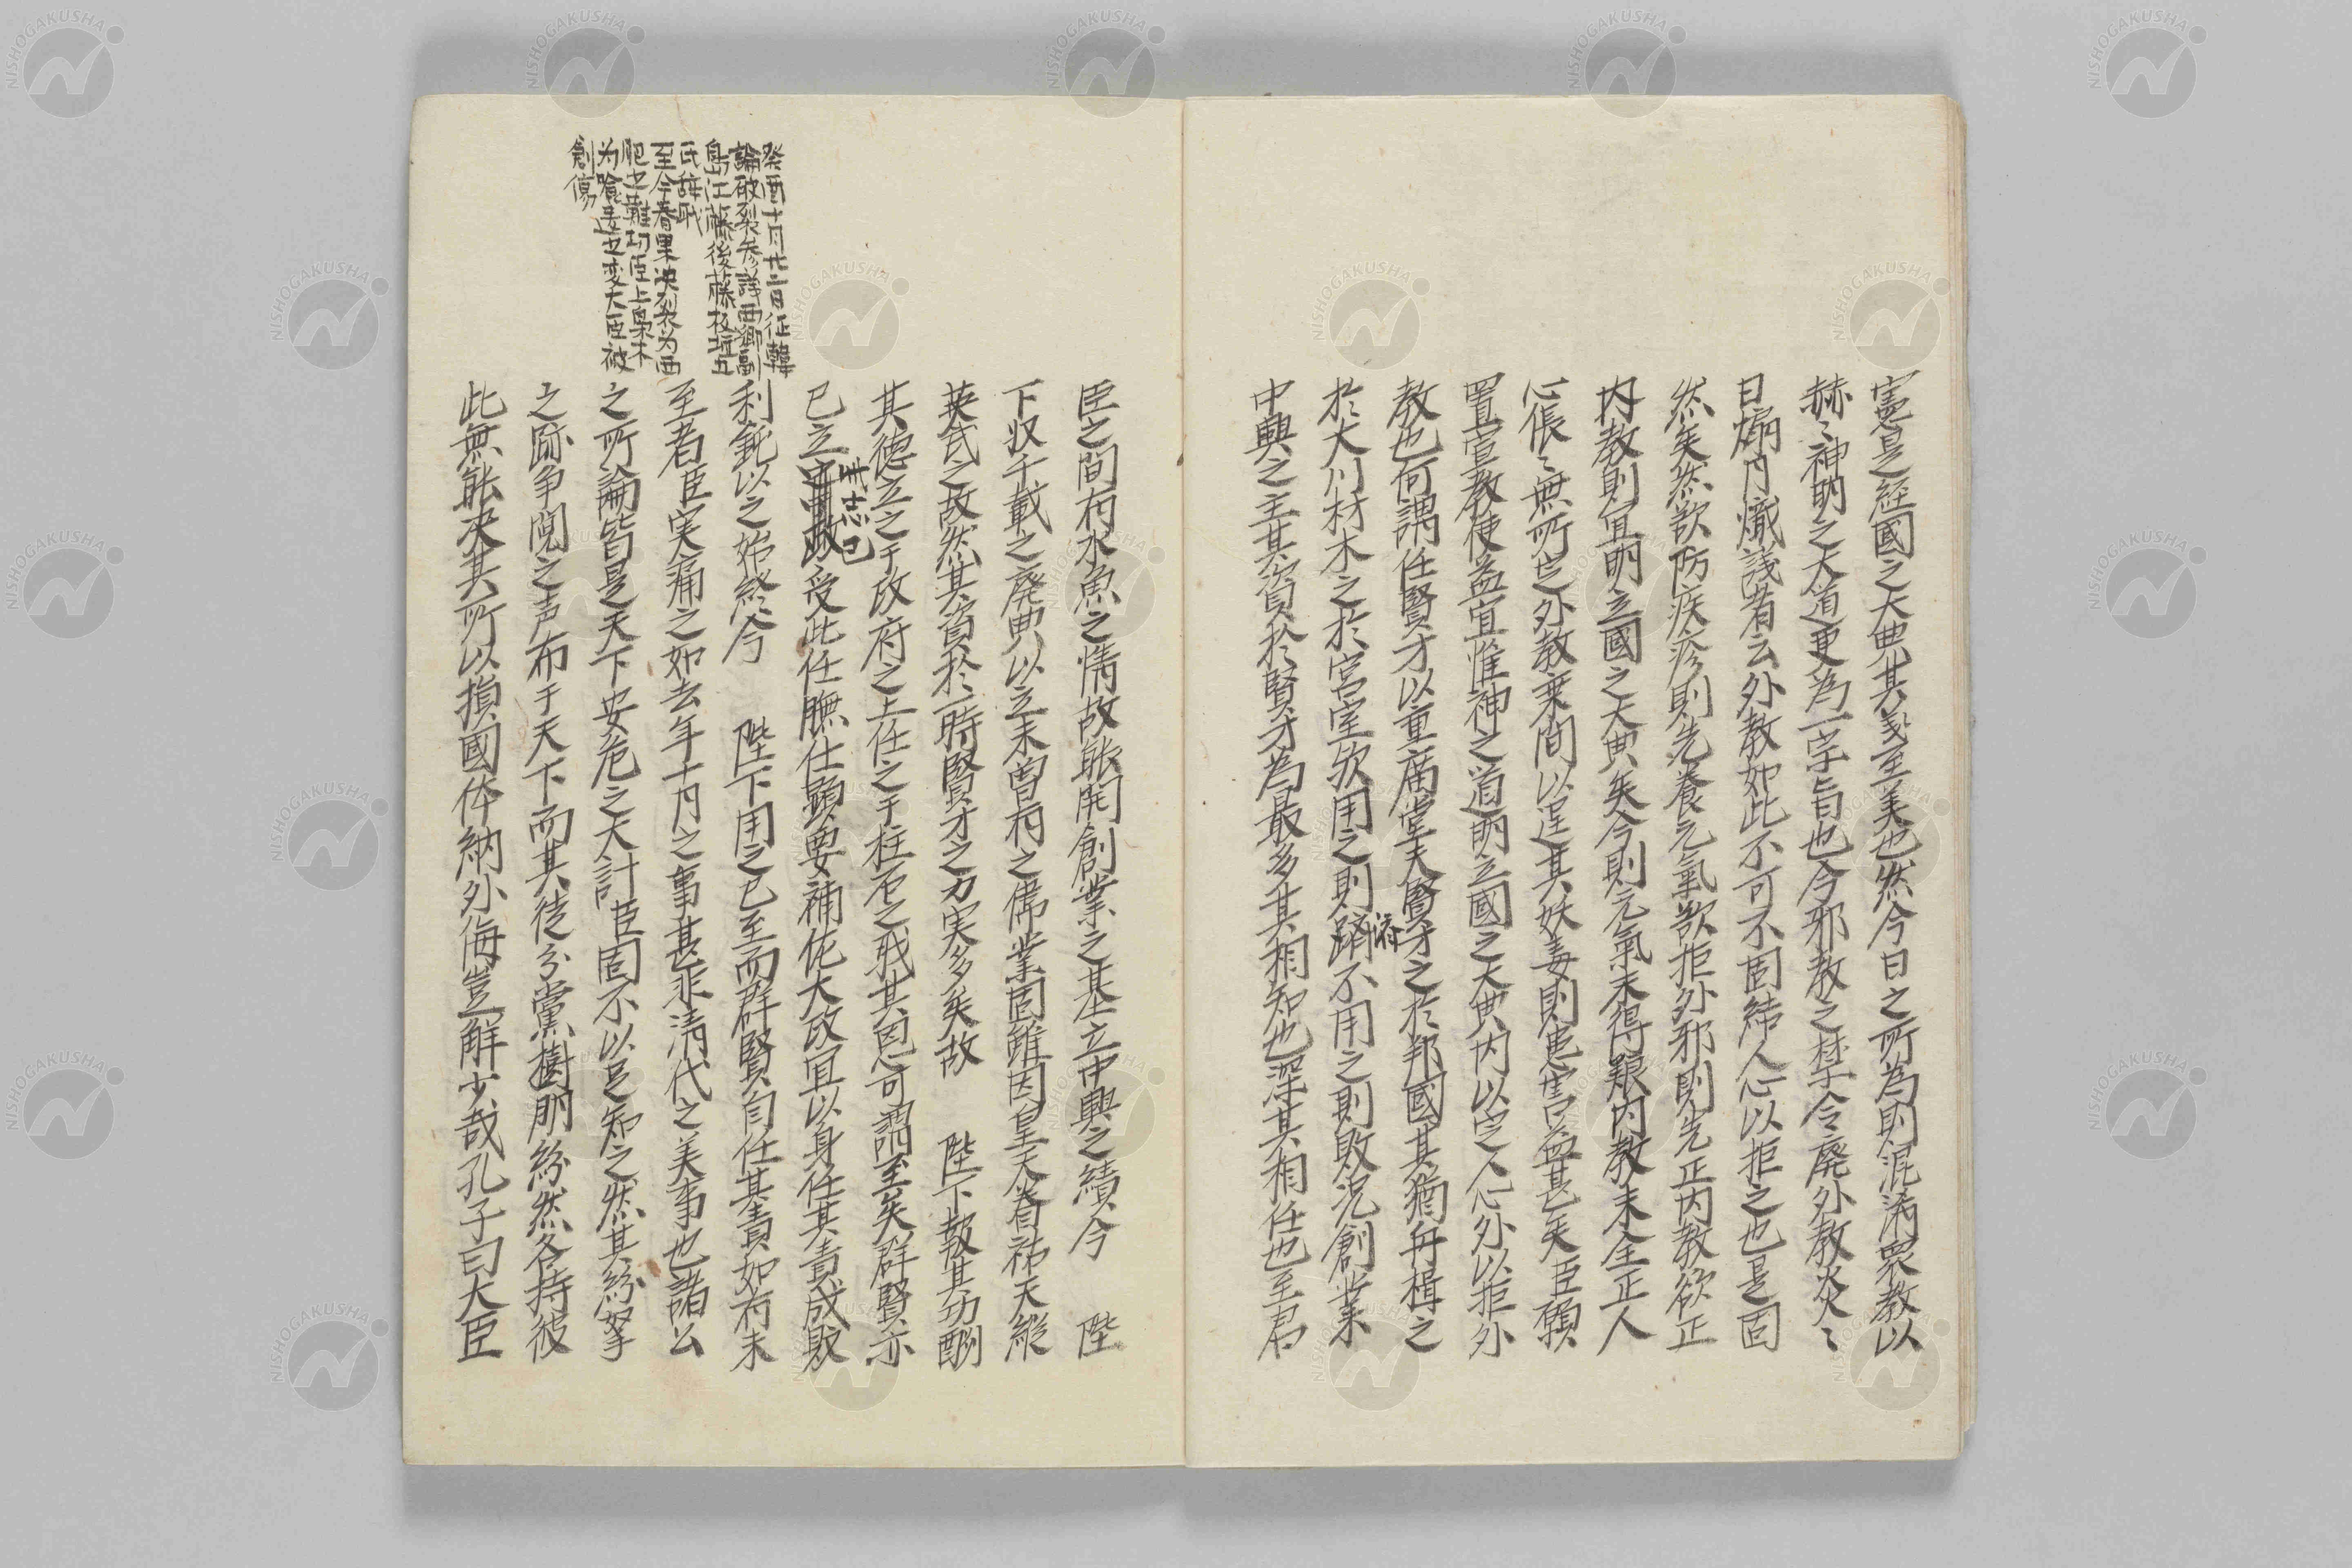 憲是経國之大典其義至美也然今日之所為則混淆衆教以
赫〻神明之大道更為一宗旨也今邪教之禁令廃外教炎〻
日煽内熾議者云外教如此不可不固結人心以拒之也是固
然矣然欲防疾疹則先養元氣欲拒外邪則先正内教欲正
内教則宜明立國之大典矣今則元氣未得艱内教未全正人
心倀〻無所定外教乗間以逞其妖毒則患害益甚矣臣願
置宣教使益宣惟神之道明立國之大典内以定人心外以拒外
教也何謂任賢才以重廣堂夫賢才之於邦國其猶舟楫之
於大川材木之於宮室欤用之則躋不用之則敗況創業
済
中興之主其資於賢才為最多其相知也深其相任也至君
臣之間有水魚之情故能開創業之基立中興之績今 陛
下収千載之廃典以立未曽有之偉業固雖因皇天眷祐天縦
英武之故然其資於一時賢才之力実多矣故 陛下報其功酬
其徳立之于政府之上任之于柱石之職其恩可謂至矣群賢亦
已立 受此任膴仕顕要補佐大政宜以身任其責成敗
其志已
利鈍以之始終今 陛下用之已至而群賢自任其責如有未
至者臣実痛之如去年十月之事甚非清代之美事也諸公
之所論皆是天下安危之大計臣固不以足知之然其紛拏
之跡争鬩之声布于天下而其徒分黨樹朋紛然各持彼
此無能决其所以損國体納外侮豈解少哉孔子曰大臣
癸酉十月廿二日征韓
論破裂参議西郷副
島江藤後藤板垣五
氏辞職
至今春果决裂为西
肥之難功臣上梟木
为喰違之変大臣被
創傷